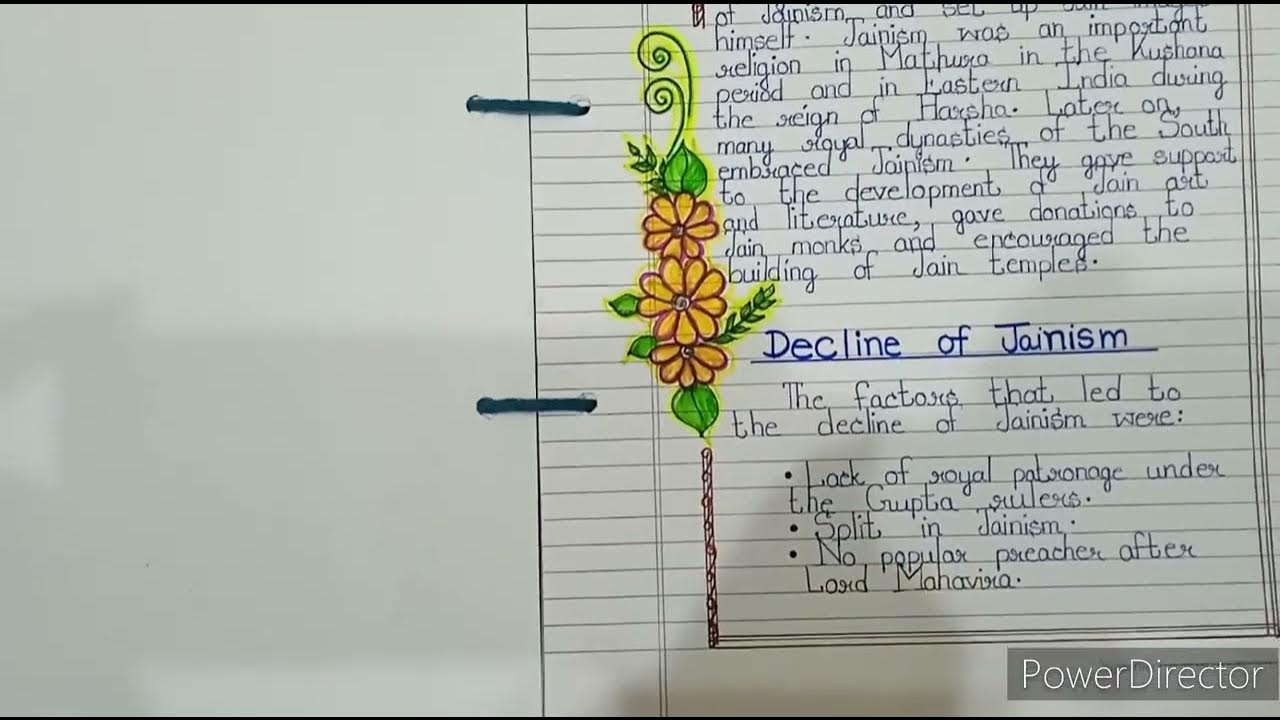 of Jainism, and set up Jain
himself. Jainism was an important
religion in Mathura in the Kushana
period and in Eastern India during
the reign of Harsha. Later on,
many royal dynasties of the South
embraced Jainism. They gave support
to the development of Jain art
and literature, gave donations to
Jain monks and encouraged the
building of Jain temples.
Decline of Jainism
The factors that led to
the decline of Jainism were:
• Lack of royal patronage under
the Gupta rulers.
• Split in Jainism.
• No popular preacher after
Lord Mahavira.
PowerDirector